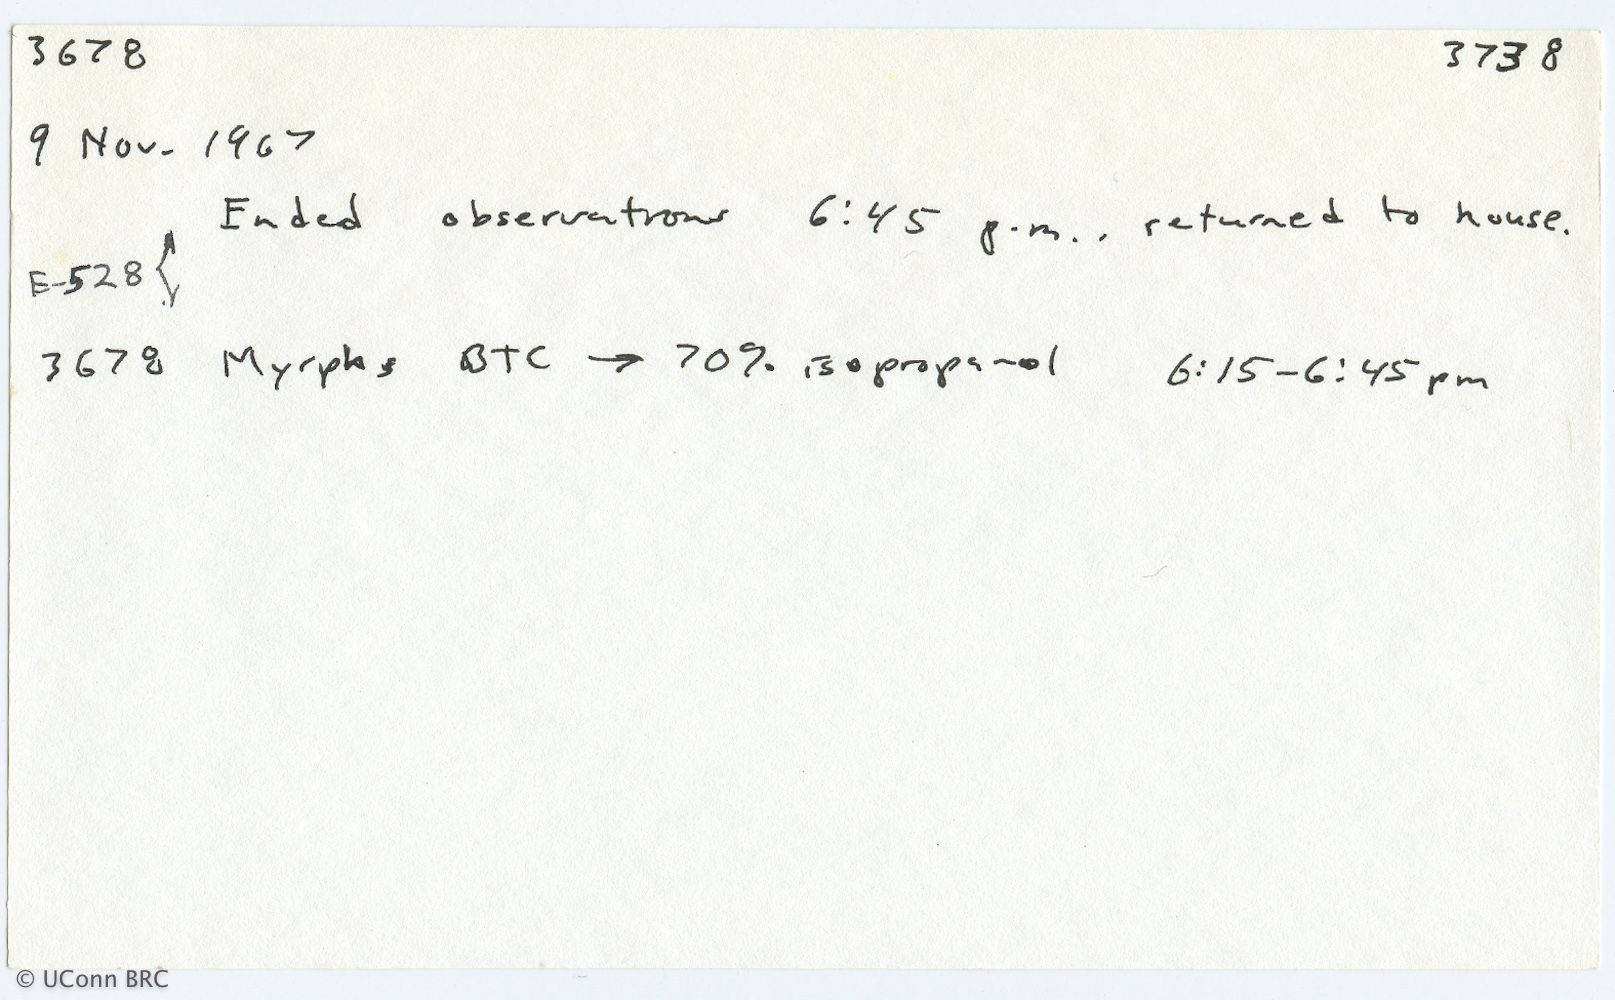 3678 3738
9 Nov. 1967
Ended observations 6:45 p.m., returned to house.
E-528 {
3678 Myrphs BTC → 70% isopropanol 6:15-6:45 pm
© UConn BRC